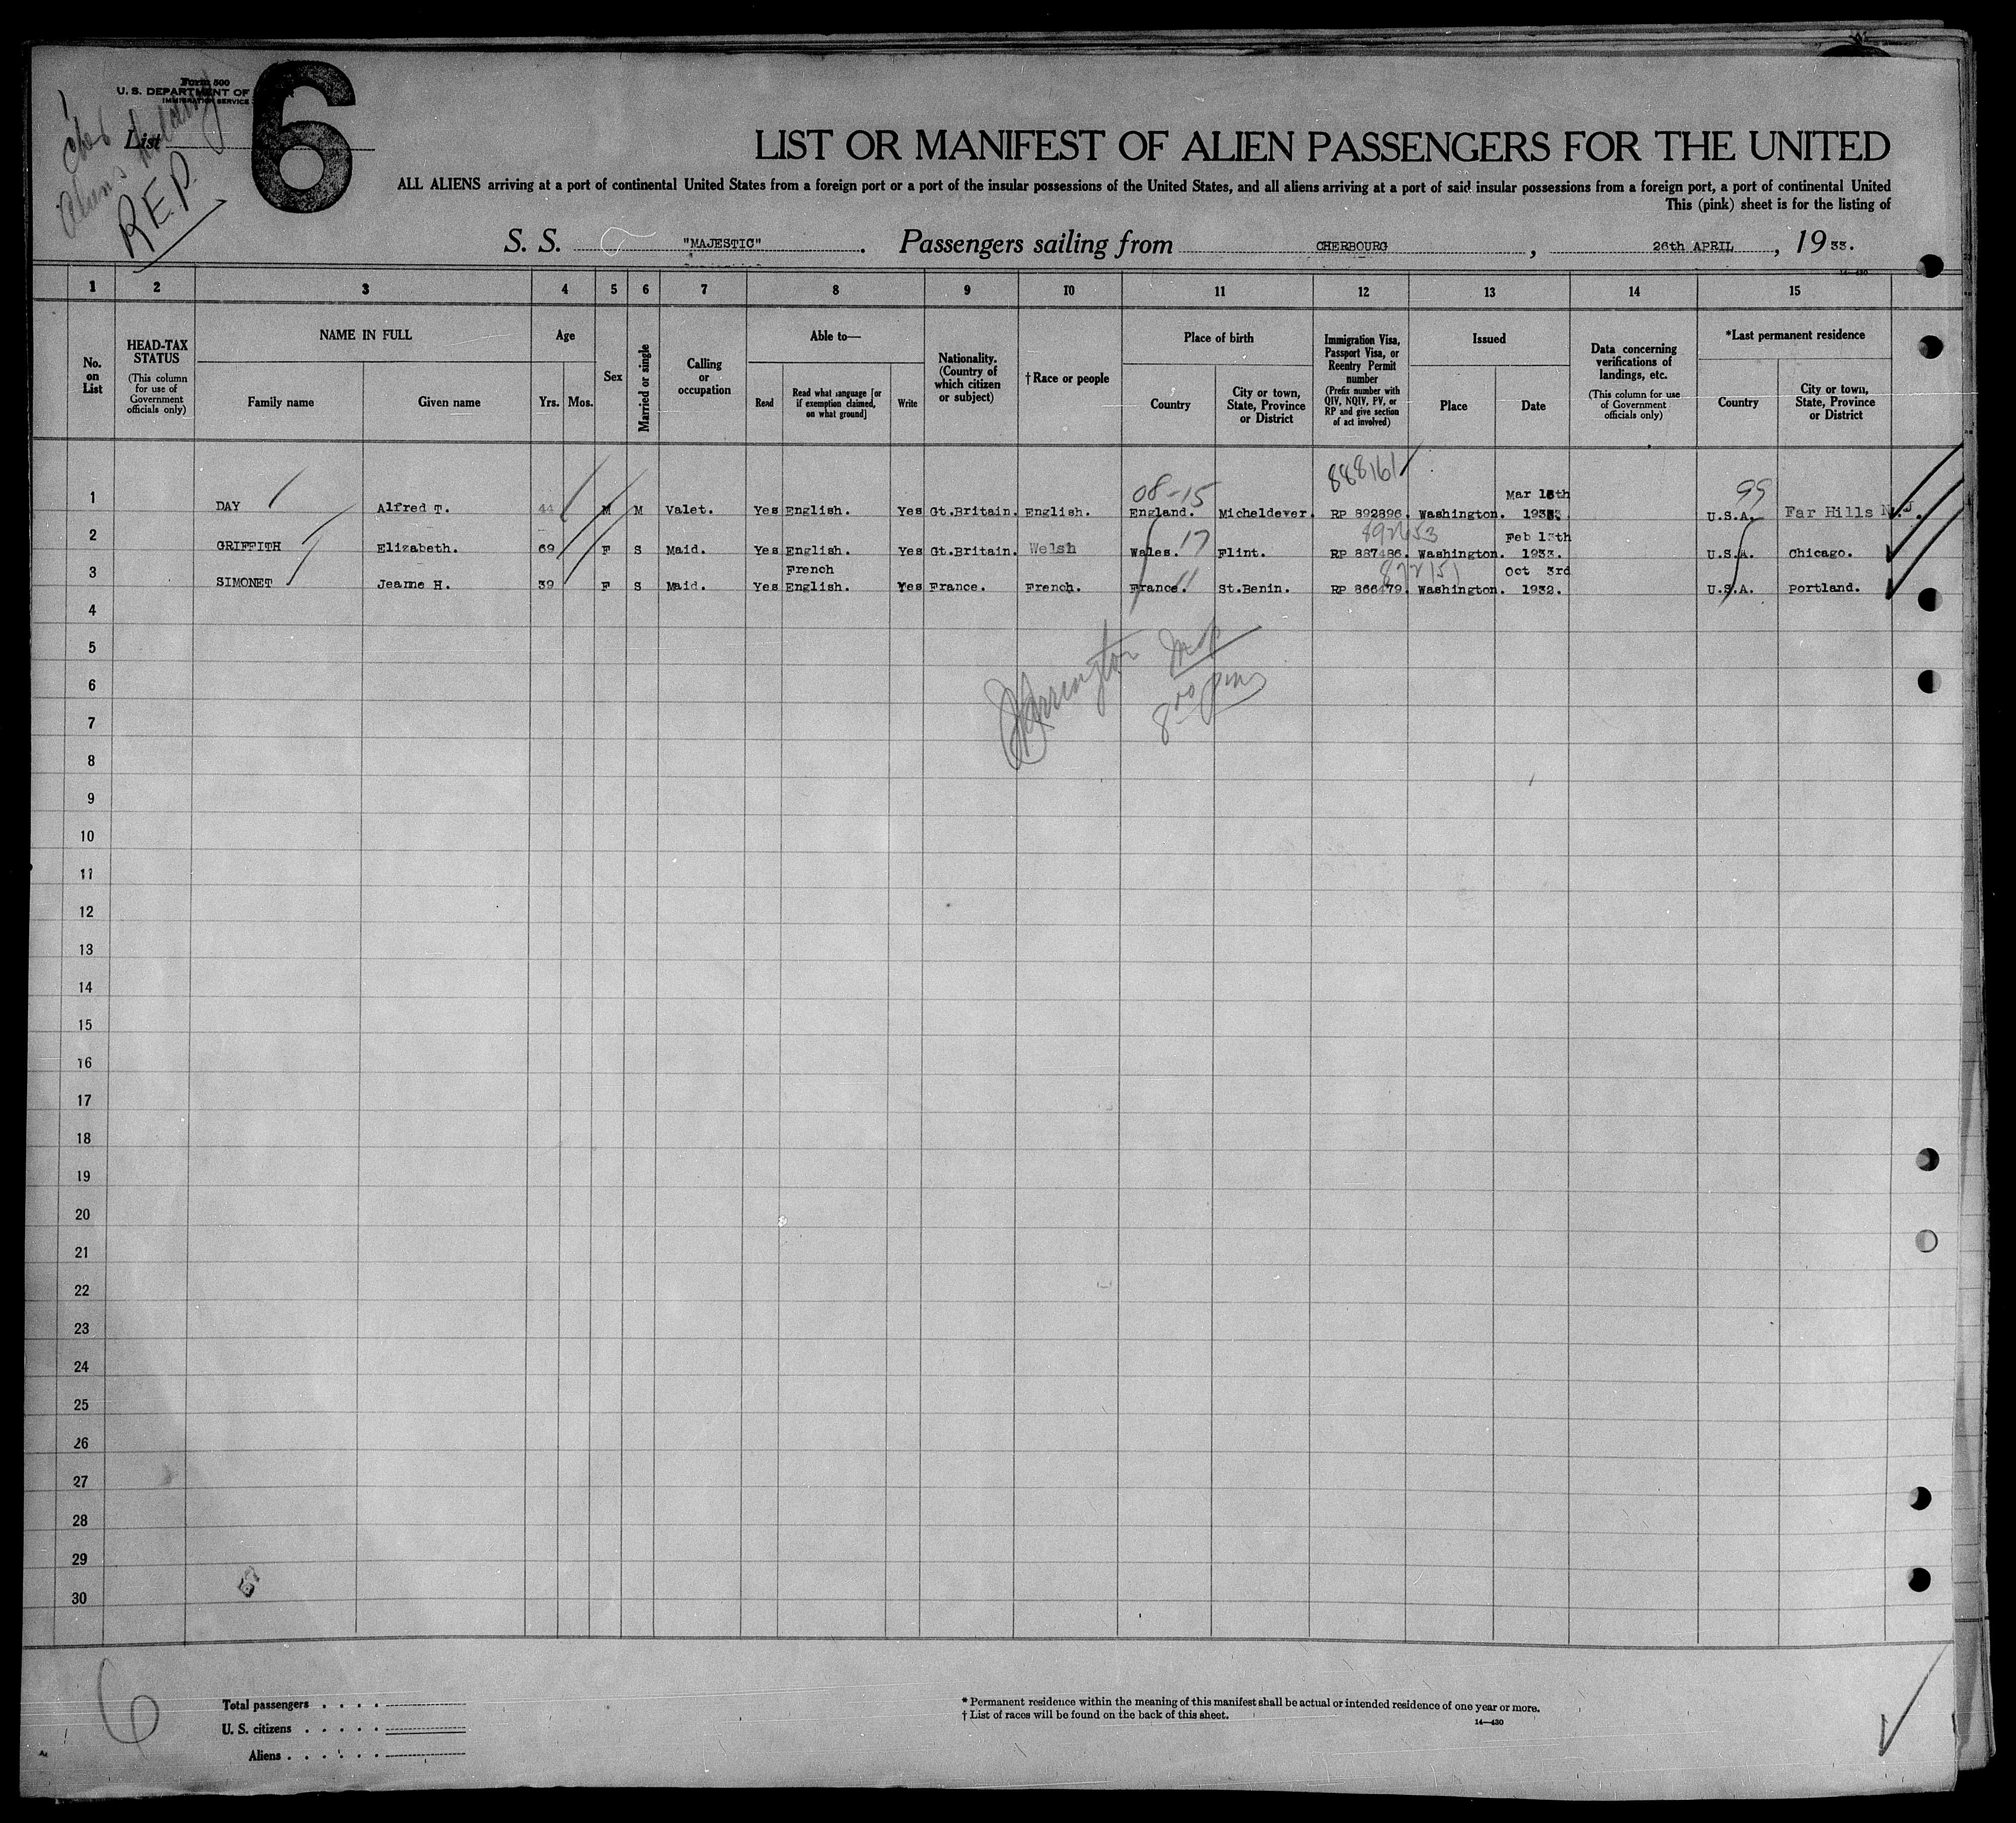 Form 500
U. S. DEPARTMENT OF
IMMIGRATION SERVICE
List
6
Aliens holding
R.E.P.
LIST OR MANIFEST OF ALIEN PASSENGERS FOR THE UNITED
ALL ALIENS arriving at a port of continental United States from a foreign port or a port of the insular possessions of the United States, and all aliens arriving at a port of said insular possessions from a foreign port, a port of continental United
This (pink) sheet is for the listing of
S. S. "MAJESTIC". Passengers sailing from CHERBOURG, 26th APRIL, 1933.
14—430
1 2 3 4 5 6 7 8 9 10 11 12 13 14 15
No. on List
HEAD-TAX STATUS (This column for use of Government officials only)
NAME IN FULL
Family name
Given name
Age
Yrs. Mos.
Sex
Married or single
Calling or occupation
Able to—
Read
Read what language [or if exemption claimed, on what ground]
Write
Nationality. (Country of which citizen or subject)
†Race or people
Place of birth
Country
City or town, State, Province or District
Immigration Visa, Passport Visa, or Reentry Permit number (Prefix number with QIV, NQIV, PV, or RP and give section of act involved)
Issued
Place
Date
Data concerning verifications of landings, etc. (This column for use of Government officials only)
*Last permanent residence
Country
City or town, State, Province or District
08-15 888161 Mar 15th 99
1 DAY Alfred T. 44 M M Valet. Yes English. Yes Gt.Britain. English. England. Micheldever. RP 892896. Washington. 1933. U.S.A. Far Hills N.J.
17 892653 Feb 13th
2 GRIFFITH Elizabeth. 69 F S Maid. Yes English. Yes Gt.Britain. Welsh Wales. Flint. RP 887486. Washington. 1933. U.S.A. Chicago.
French 11 872151 Oct 3rd
3 SIMONET Jeanne H. 39 F S Maid. Yes English. Yes France. French. France. St.Benin. RP 866479. Washington. 1932. U.S.A. Portland.
4
5
6
7
8
9
10
11
12
13
14
15
16
17
18
19
20
21
22
23
24
25
26
27
28
29
30
6
Total passengers . . . .
U. S. citizens . . . . .
Aliens . . . . . .
* Permanent residence within the meaning of this manifest shall be actual or intended residence of one year or more.
† List of races will be found on the back of this sheet.
14—430